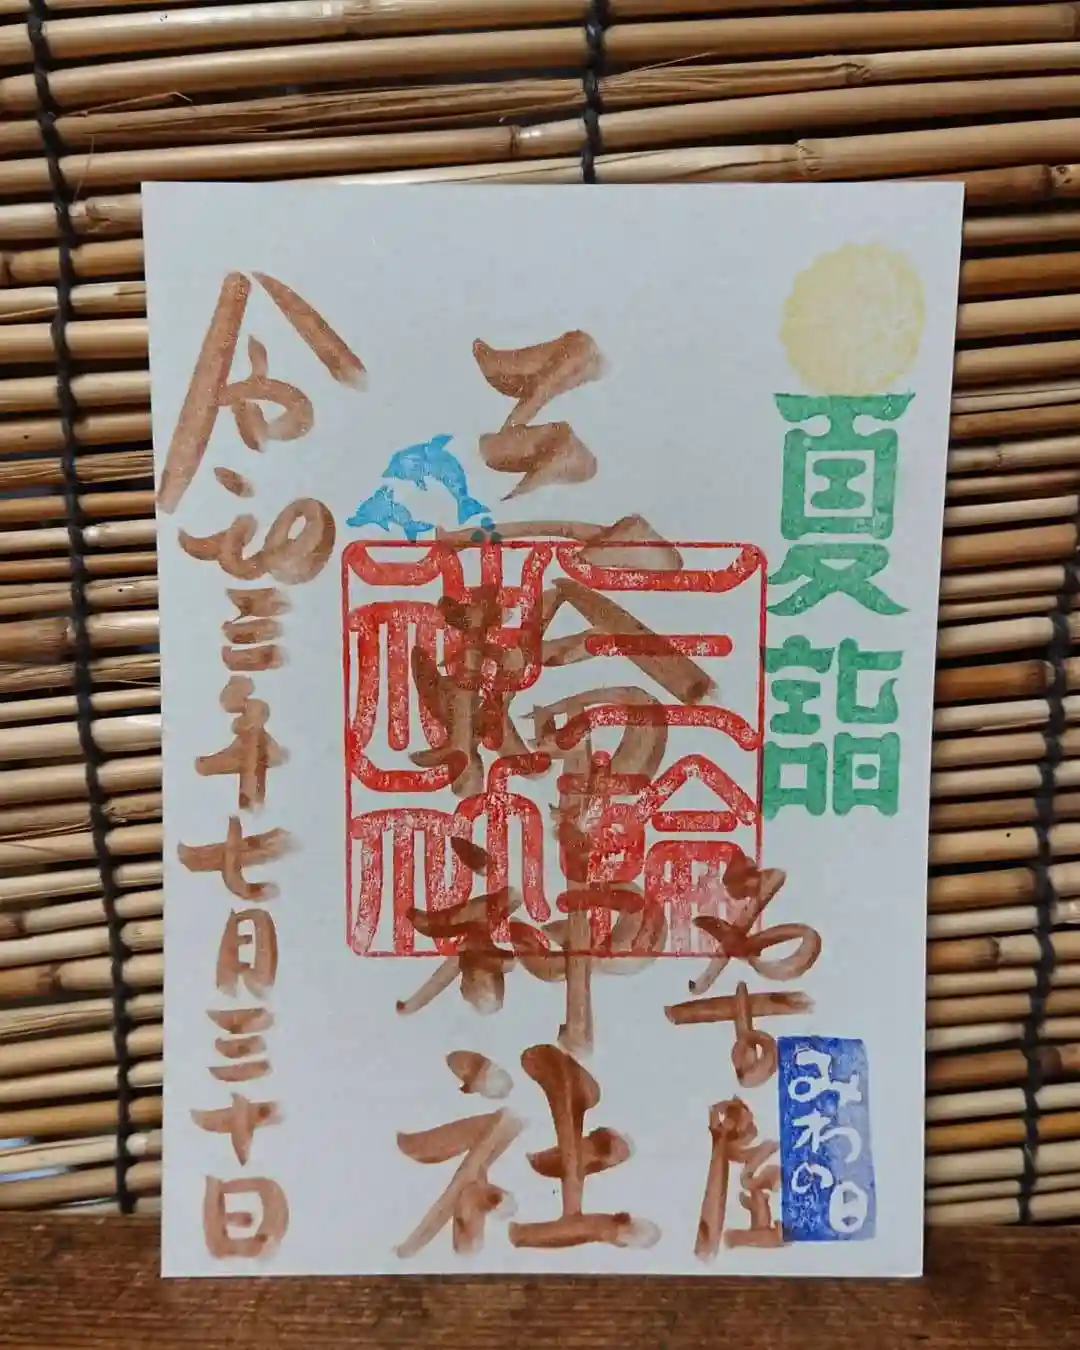 夏詣
名古屋
みわの日
三輪神社
三輪神社
令和三年七月三十日